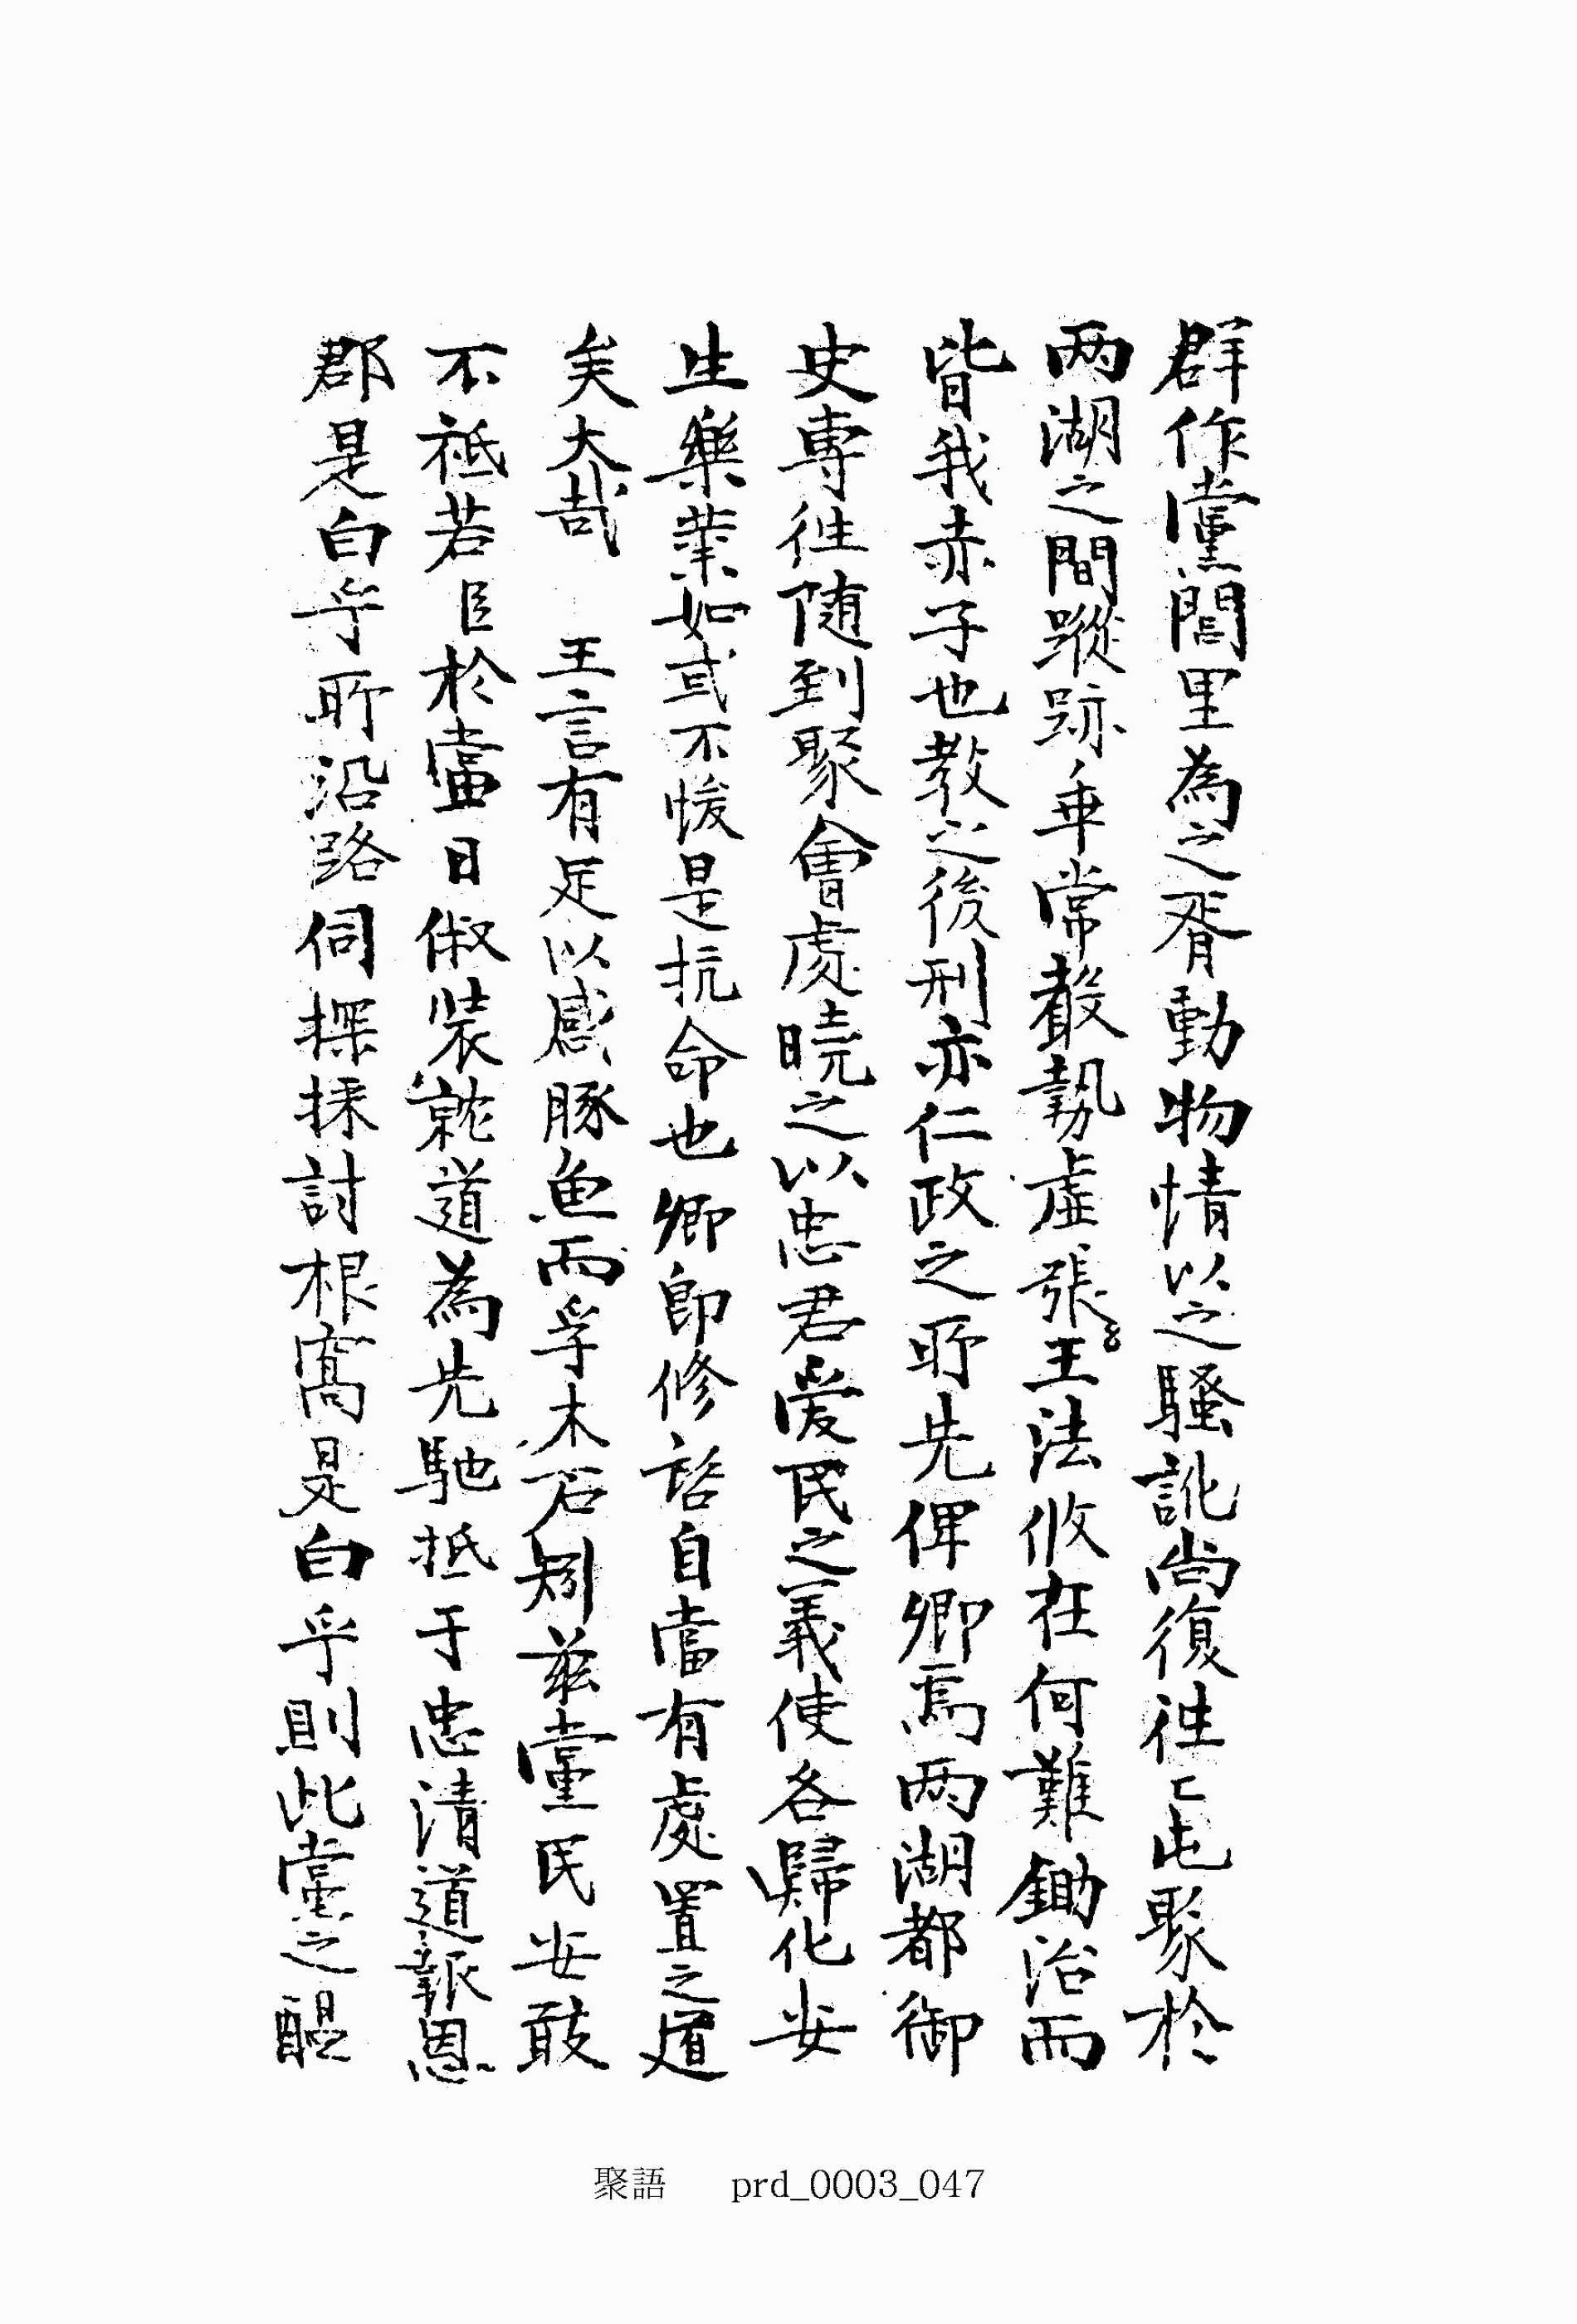 群作黨閭里爲之胥動物情以之騷訛尙復往〻屯聚於
兩湖之間蹤跡乖常聲勢虛張王法攸在何難鋤治而
皆我赤子也教之後刑亦仁政之所先俾卿爲兩湖都御
史專往随到聚會處曉之以忠君愛民之義使各歸化安
生樂業如或不悛是抗命也卿卽修諮自當有處置之道
矣大哉　王言有足以感豚魚而孚木石矧玆黨民安敢
不祗若臣於當日俶裝就道爲先馳抵于忠淸道報恩
郡是白乎所沿路伺探採討根窩是白乎則此黨之醖